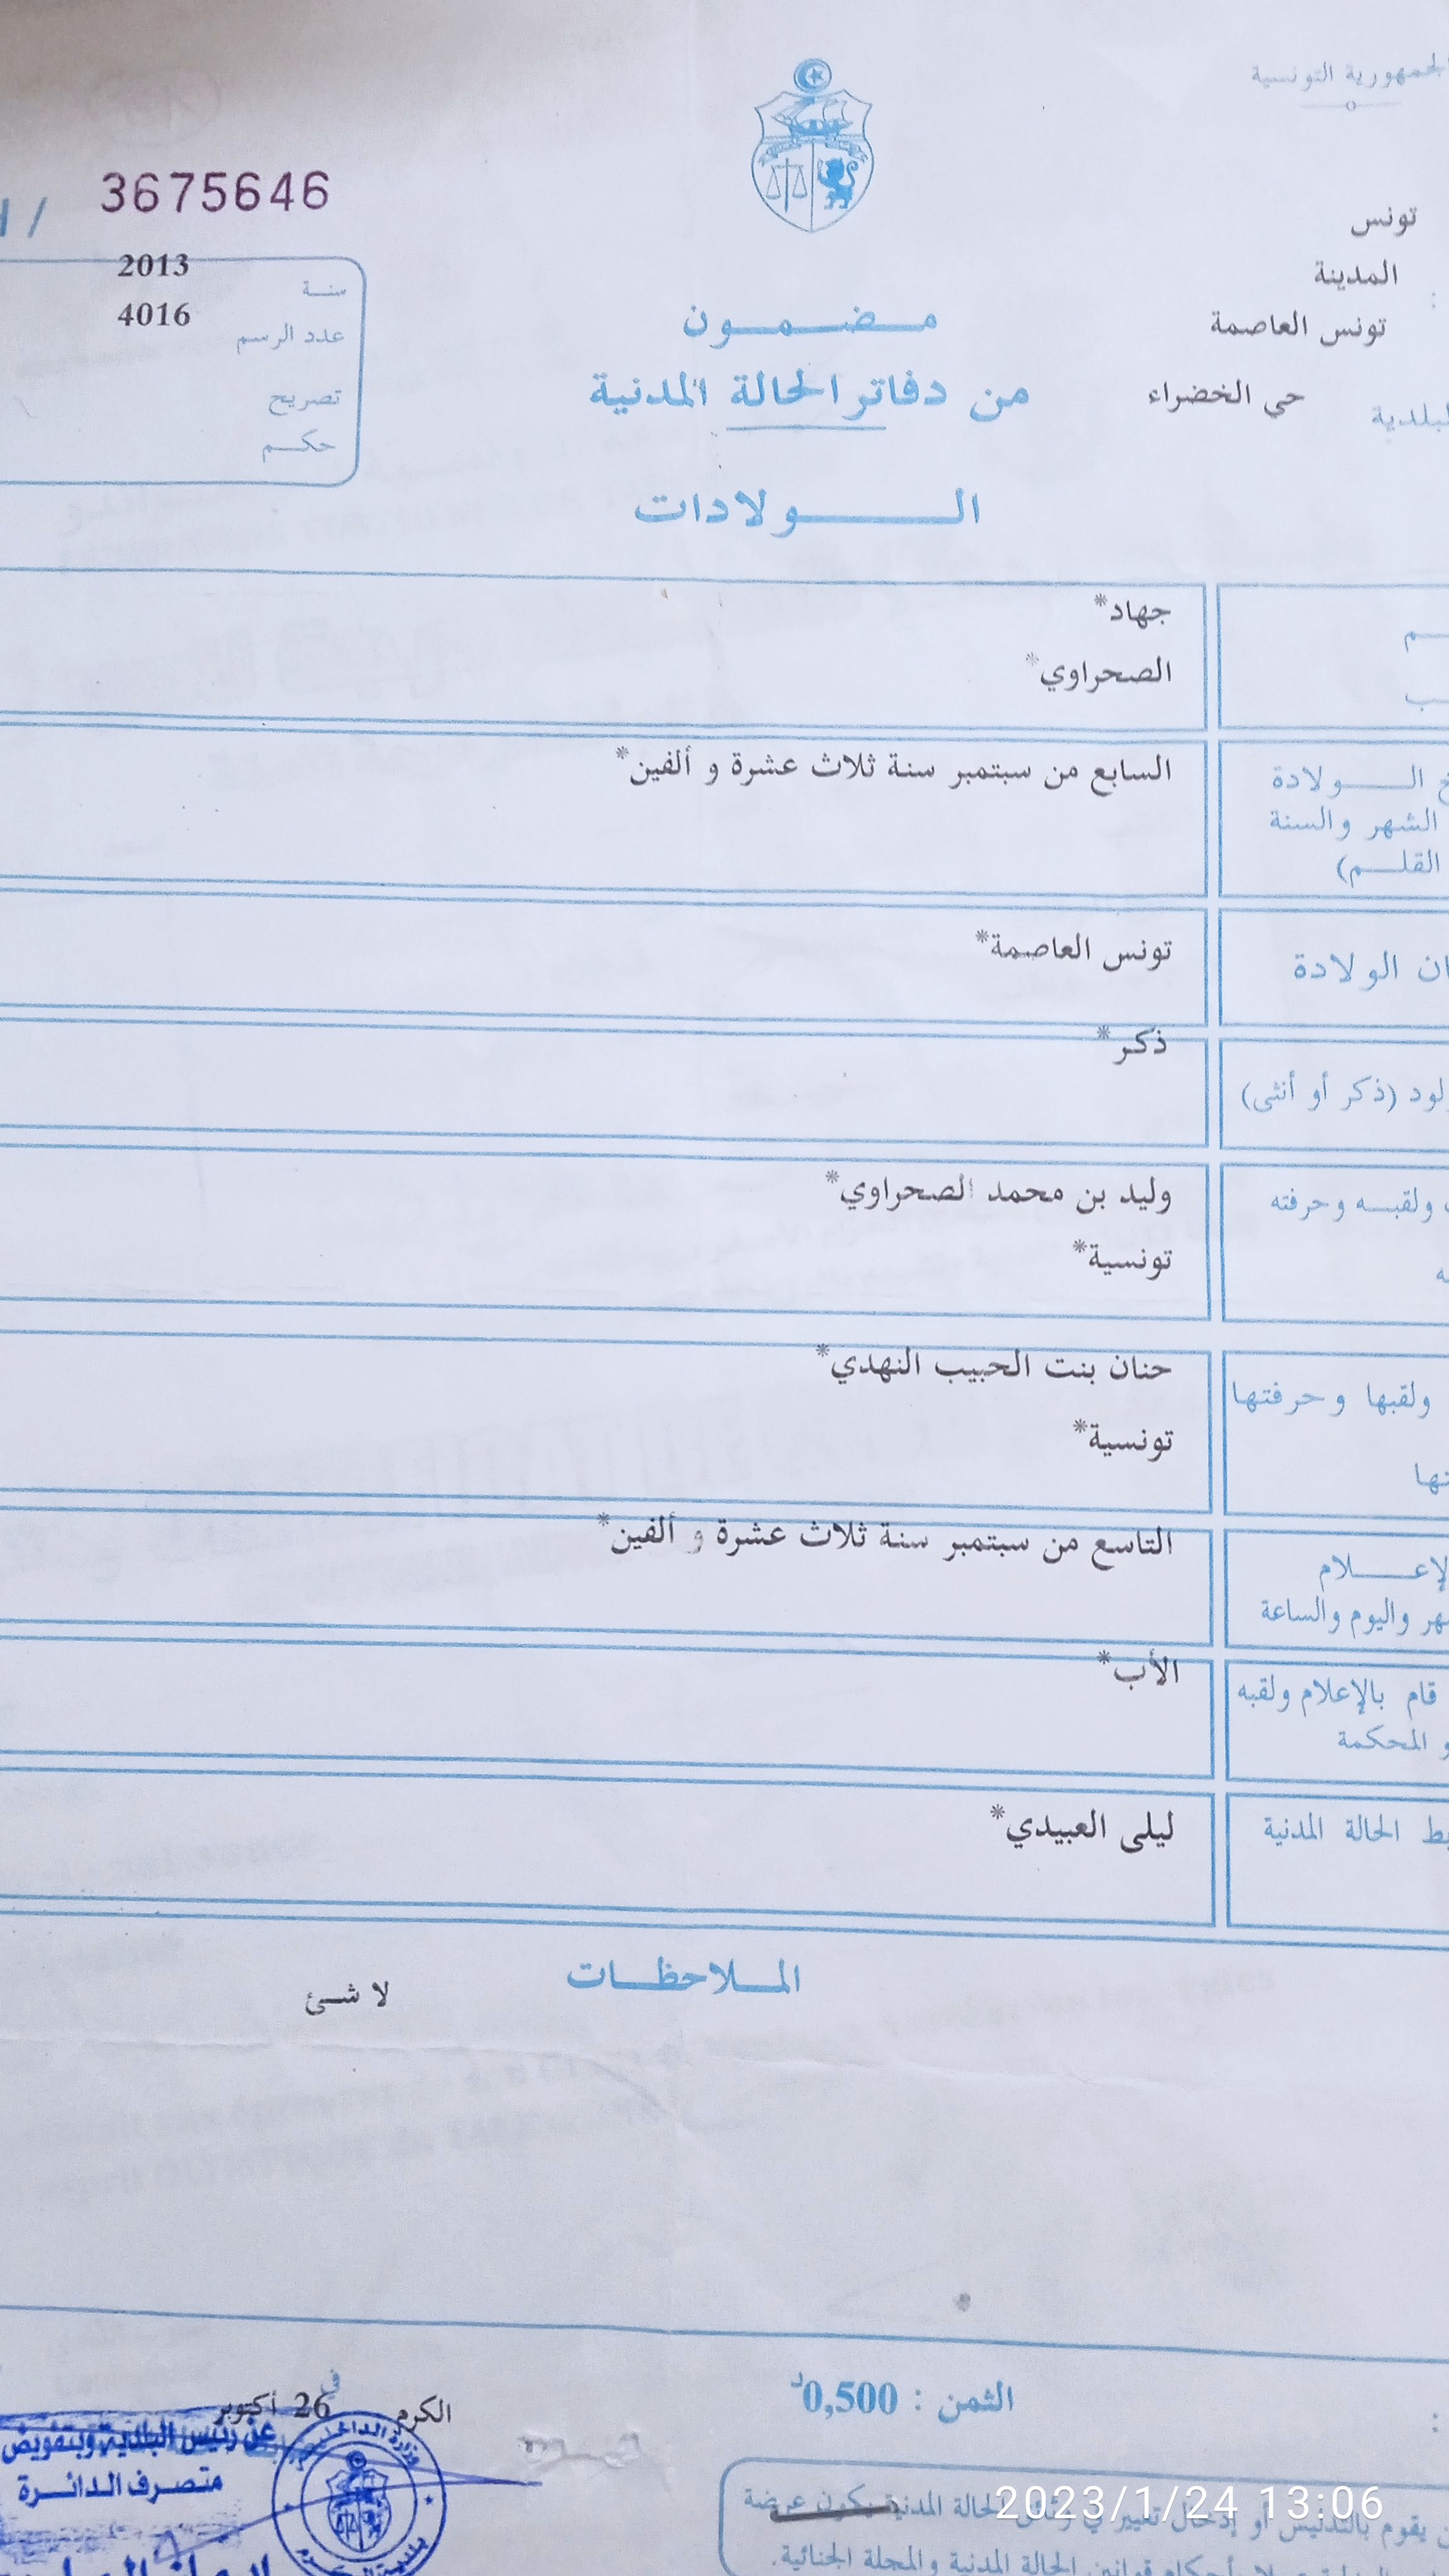 الجمهورية التونسية
3675646
تونس
المدينة
تونس العاصمة
حي الخضراء
البلدية
سنة 2013
عدد الرسم 4016
تصريح
حكم
مضمون
من دفاتر الحالة المدنية
الولادات
جهاد*
الصحراوي*
السابع من سبتمبر سنة ثلاث عشرة و ألفين*
الولادة
الشهر والسنة
القلم)
تونس العاصمة*
الولادة
ذكر*
(ذكر أو أنثى)
وليد بن محمد الصحراوي*
ولقبه وحرفته
تونسية*
حنان بنت الحبيب النهدي*
ولقبها وحرفتها
تونسية*
التاسع من سبتمبر سنة ثلاث عشرة و ألفين*
الإعلام
واليوم والساعة
الأب*
قام بالإعلام ولقبه
المحكمة
ليلى العبيدي*
الحالة المدنية
الملاحظات
لا شئ
الثمن : 0,500د
الكرم في 26 أكتوبر
عن رئيس البلدية وبتفويض
متصرف الدائرة
وزارة الداخلية
يقوم بالتدليس أو إدخال تغيير في وثائق الحالة المدنية يكون عرضة
أحكام قوانين الحالة المدنية والمجلة الجنائية.
2023/1/24 13:06